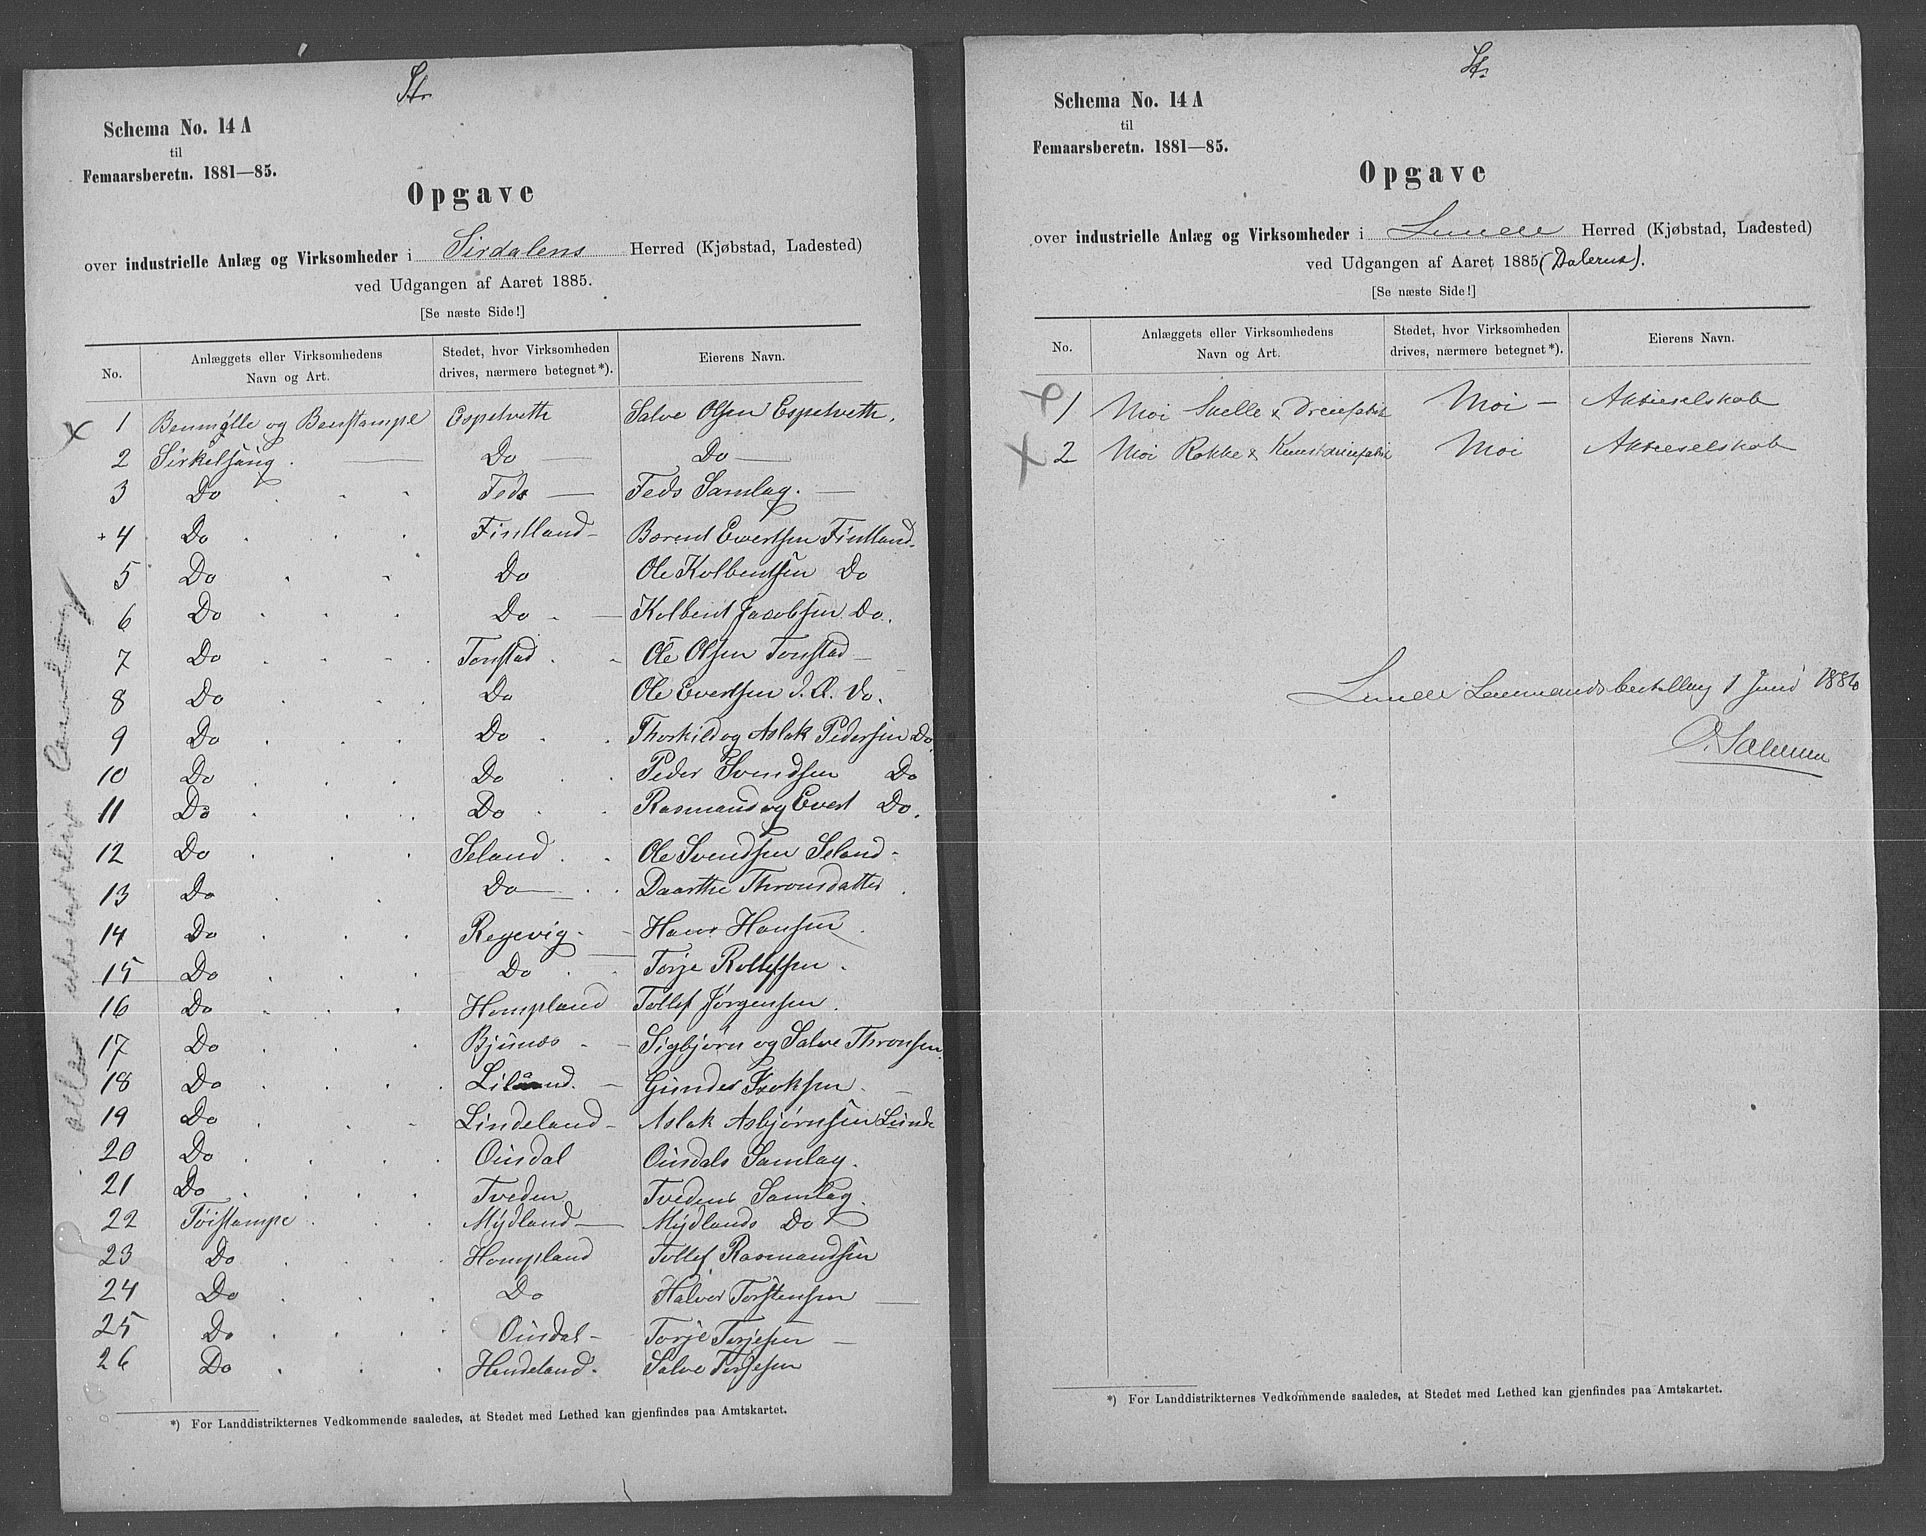 St.
Schema No. 14 A
til
Femaarsberetn. 1881—85.
Opgave
over industrielle Anlæg og Virksomheder i Sirdalens Herred (Kjøbstad, Ladested)
ved Udgangen af Aaret 1885.
[Se næste Side!]
No. Anlæggets eller Virksomhedens Navn og Art. Stedet, hvor Virksomheden drives, nærmere betegnet*). Eierens Navn.
x 1 Benmølle og Benstampe Espetveth Salve Olsen Espetveth.
2 Sirkelsaug. Do — Do —
3 Do Feds — Feds Samlag. —
+ 4 Do Fintland — Berent Evertsen Fintland.
5 Do Do Ole Kolbentsen Do
6 Do Do — Kolbent Jacobsen Do.
7 Do Tonstad Ole Olsen Tonstad —
8 Do Do Ole Evertsen Do.
9 Do Do Thorkild og Aslak Pedersen Do.
10 Do Do Peder Svendsen Do
11 Do Do Rasmund og Evert Do.
12 Do Seland Ole Svendsen Seland -
13 Do Do — Daarthe Thronsdatter
14 Do Regevig. Hans Hansen
15 Do Do Torje Rollefsen.
16 Do Hompland Tollef Jørgensen.
17 Do Bjunes - Sigbjørn og Salve Thronsen.
18 Do Liland. — Gunder
19 Do Lindeland - Aslak Asbjørnsen Lunde
20 Do Ousdal Ousdals Samlag.
21 Do Tveden Tvedens Samlag.
22 Tøistampe Mydland — Mydlands Do
23 Do Hompland Tollef Rasmundsen
24 Do Do Halvor Torstensen —
25 Do Ousdal - Torje Terjesen —
26 Do Haudeland. Salve Terjesen
*) For Landdistrikternes Vedkommende saaledes, at Stedet med Lethed kan gjenfindes paa Amtskartet.
alle
St.
Schema No. 14 A
til
Femaarsberetn. 1881—85.
Opgave
over industrielle Anlæg og Virksomheder i Lunde Herred (Kjøbstad, Ladested)
ved Udgangen af Aaret 1885 (Dalerne).
[Se næste Side!]
No. Anlæggets eller Virksomhedens Navn og Art. Stedet, hvor Virksomheden drives, nærmere betegnet*). Eierens Navn.
x 1 Moi Snelle & Dreiefabrik Moi — Aktieselskab
x 2 Moi Rokke & Kunstdreiefabrik Moi Aktieselskab
Lunde Lensmandsbestilling 1 Juni 1886
O. Salmen
*) For Landdistrikternes Vedkommende saaledes, at Stedet med Lethed kan gjenfindes paa Amtskartet.